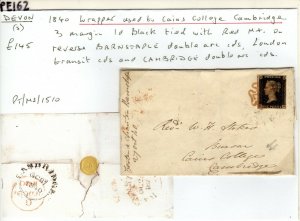 PE162
DEVON
(3)
£145
1840 Wrapper used to Caius College Cambridge.
3 margin 1d black tied with Red MX. on
reverse BARNSTAPLE double arc cds, London
transit cds and CAMBRIDGE double arc cds.
Pr/MS/1510
Revd. W. H. Stokes
Caius College
Cambridge
CAMBRIDGE